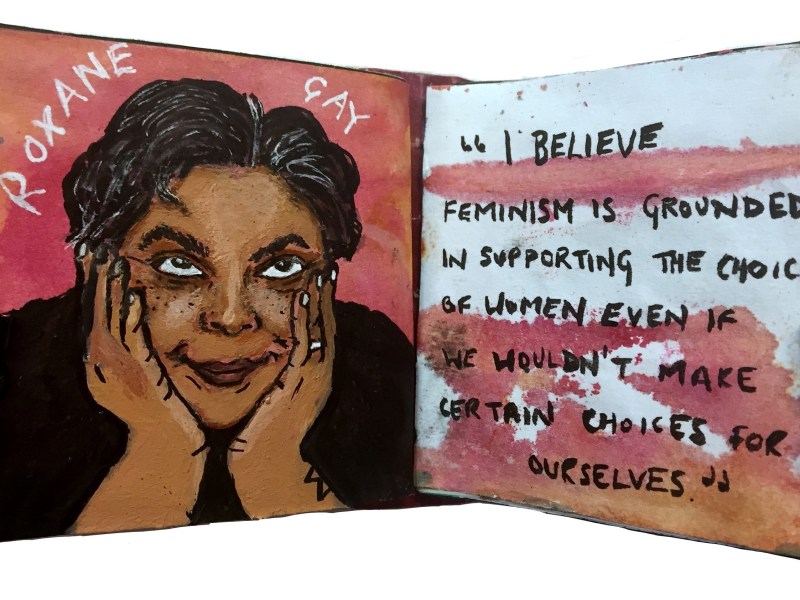 ROXANE GAY
“ I BELIEVE
FEMINISM IS GROUNDED
IN SUPPORTING THE CHOIC
OF WOMEN EVEN IF
WE WOULDN'T MAKE
CERTAIN CHOICES FOR
OURSELVES. ”